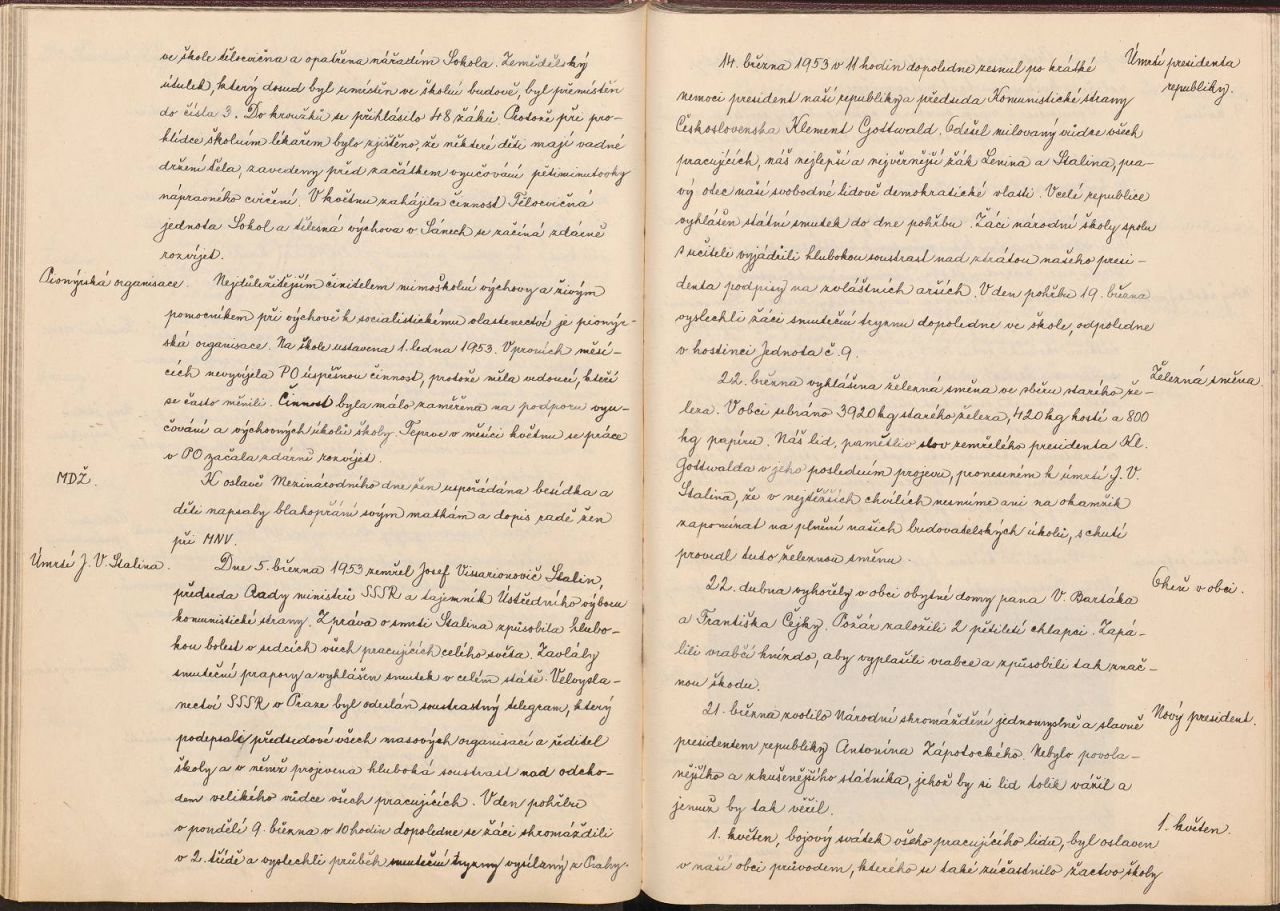 ve škole tělocvična a opatřena nářadím Sokola. Zemědělský
útulek, který dosud byl umístěn ve školní budově, byl přemístěn
do čísla 3. Do kroužků se přihlásilo 48 žáků. Protože při pro-
hlídce školním lékařem bylo zjištěno, že některé děti mají vadné
držení těla zavedeny před začátkem vyučování pětiminutovky
nápravného cvičení. V květnu zahájila činnost Tělocvičná
jednota Sokol a tělesná výchova v Sánech se začíná zdárně
rozvíjet.
Pionýrská organisace. Nejdůležitějším činitelem mimoškolní výchovy a živým
pomocníkem při výchově k socialistickému vlastenectví je pionýr-
ská organisace. Na škole ustavena 1. ledna 1953. V prvních měsí-
cích nevyvíjela PO úspěšnou činnost, protože měla vedoucí, kteří
se často měnili. Činnost byla málo zaměřena na podporu vyu-
čování a výchovných úkolů školy. Teprve v měsíci květnu se práce
v PO začala zdárně rozvíjet.
MDŽ. K oslavě Mezinárodního dne žen uspořádána besídka a
děti napsaly blahopřání svým matkám a dopis radě žen
při MNV.
Úmrtí J. V. Stalina. Dne 5. března 1953 zemřel Josef Vissarionovič Stalin,
předseda Rady ministrů SSSR a tajemník Ústředního výboru
komunistické strany. Zpráva o smrti Stalina způsobila hlubo-
kou bolest v srdcích všech pracujících celého světa. Zavlály
smuteční prapory a vyhlášen smutek v celém státě. Velvysla-
nectví SSSR v Praze byl odeslán soustrastný telegram, který
podepsali předsedové všech masových organisací a ředitel
školy a v němž projevena hluboká soustrast nad odcho-
dem velikého vůdce všech pracujících. V den pohřbu
v pondělí 9. března v 10 hodin dopoledne se žáci shromáždili
v 2. třídě a vyslechli průběh smuteční tryzny vysílaný z Prahy.
14. března 1953 v 11 hodin dopoledne zesnul po krátké Úmrtí presidenta
republiky.
nemoci president naší republiky a předseda Komunistické strany
Československa Klement Gottwald. Odešel milovaný vůdce všech
pracujících, náš nejlepší a nejvěrnější žák Lenina a Stalina, pra-
vý otec naší svobodné lidově demokratické vlasti. V celé republice
vyhlášen státní smutek do dne pohřbu. Žáci národní školy spolu
s učiteli vyjádřili hlubokou soustrast nad ztrátou našeho presi-
denta podpisy na zvláštních arších. V den pohřbu 19. března
vyslechli žáci smuteční tryznu dopoledne ve škole, odpoledne
v hostinci Jednota č. 9.
22. března vyhlášena železná směna ve sběru starého že- Železná směna.
leza. V obci sebráno 3920 kg starého železa, 420 kg kostí a 800
kg papíru. Náš lid, pamětliv slov zemřelého presidenta Kl.
Gottwalda v jeho posledním projevu, proneseném k úmrtí J. V.
Stalina, že v nejtěžších chvílích nesmíme ani na okamžik
zapomínat na plnění našich budovatelských úkolů, s chutí
provedl tuto železnou směnu.
22. dubna vyhořely v obci obytné domy pana V. Bartáka Oheň v obci.
a Františka Čejky. Požár založili 2 pětiletí chlapci. Zapá-
lili vrabčí hnízdo, aby vyplašili vrabce a způsobili tak znač-
nou škodu.
21. března zvolilo Národní shromáždění jednomyslně a slavně Nový president.
presidentem republiky Antonína Zápotockého. Nebylo povola-
nějšího a zkušenějšího státníka, jehož by si lid tolik vážil a
jemuž by tak věřil.
1. květen, bojový svátek všeho pracujícího lidu, byl oslaven 1. květen.
v naší obci průvodem, kterého se také zúčastnilo žactvo školy